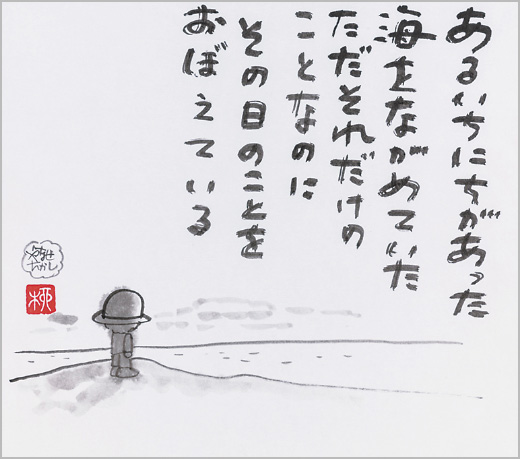 あるいちにちがあった
海をながめていた
ただそれだけの
ことなのに
その日のことを
おぼえている
やなせ
たかし
柳